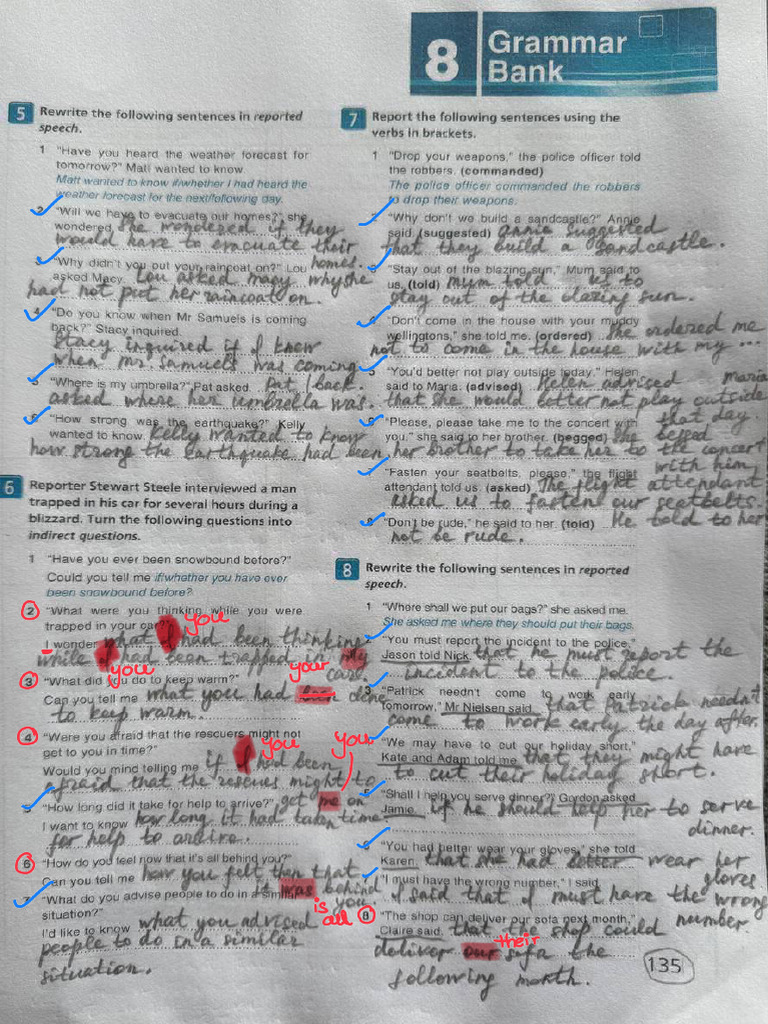 8 Grammar Bank
5 Rewrite the following sentences in reported speech.
1 "Have you heard the weather forecast for
tomorrow?" Matt wanted to know
Matt wanted to know if/whether I had heard the
weather forecast for the next/following day.
2 "Will we have to evacuate our homes?" she
wondered. She wondered if they
would have to evacuate their
homes.
3 "Why didn't you put your raincoat on?" Lou
asked Macy. Lou asked macy why she
had not put her raincoat on.
4 "Do you know when Mr Samuels is coming
back?" Stacy inquired.
Stacy inquired if I knew
when mr. Samuels was coming
back.
5 "Where is my umbrella?" Pat asked. Pat
asked where her umbrella was.
6 "How strong was the earthquake?" Kelly
wanted to know. Kelly wanted to know
how strong the earthquake had been
6 Reporter Stewart Steele interviewed a man
trapped in his car for several hours during a
blizzard. Turn the following questions into
indirect questions.
1 "Have you ever been snowbound before?"
Could you tell me if/whether you have ever
been snowbound before?
2 "What were you thinking while you were
trapped in your car?" you
I wonder what I had been thinking
while I had been trapped in my
you care
3 "What did you do to keep warm?" your
Can you tell me what you had done
to keep warm.
4 "Were you afraid that the rescuers might not
get to you in time?" you you
Would you mind telling me if I had been
afraid that the rescues might to
get me on
time
5 "How long did it take for help to arrive?"
I want to know how long it had taken
for help to arrive.
6 "How do you feel now that it's all behind you?"
Can you tell me how you felt then that
it was behind
you.
is all
7 "What do you advise people to do in a similar
situation?"
I'd like to know what you advised
people to do in a similar
situation.
7 Report the following sentences using the
verbs in brackets.
1 "Drop your weapons," the police officer told
the robbers. (commanded)
The police officer commanded the robbers
to drop their weapons.
2 "Why don't we build a sandcastle?" Annie
said. (suggested) annie suggested
that they build a sandcastle.
3 "Stay out of the blazing sun," Mum said to
us. (told) mum told us to
stay out of the blazing sun.
4 "Don't come in the house with your muddy
wellingtons," she told me. (ordered) She ordered me
not to come in the house with my ...
5 "You'd better not play outside today." Helen
said to Maria. (advised) Helen advised maria
that she would better not play outside
that day.
6 "Please, please take me to the concert with
you," she said to her brother. (begged) She begged
her brother to take her to the concert
with him.
7 "Fasten your seatbelts, please," the flight
attendant told us. (asked) The flight attendant
asked us to fasten our seatbelts.
8 "Don't be rude," he said to her. (told) He told to her
not be rude.
8 Rewrite the following sentences in reported
speech.
1 "Where shall we put our bags?" she asked me.
She asked me where they should put their bags.
2 "You must report the incident to the police,"
Jason told Nick. that he must report the
incident to the police.
3 "Patrick needn't come to work early
tomorrow," Mr Nielsen said. that Patrick needn't
come to work early the day after.
4 "We may have to cut our holiday short,"
Kate and Adam told me. that they might have
to cut their holiday short.
5 "Shall I help you serve dinner?" Gordon asked
Jamie. if he should help her to serve
dinner.
6 "You had better wear your gloves," she told
Karen. that she had better wear her
gloves
7 "I must have the wrong number," I said
I said that I must have the wrong
number.
8 "The shop can deliver our sofa next month,"
Claire said. that the shop could
their
deliver our sofa the
following month.
135